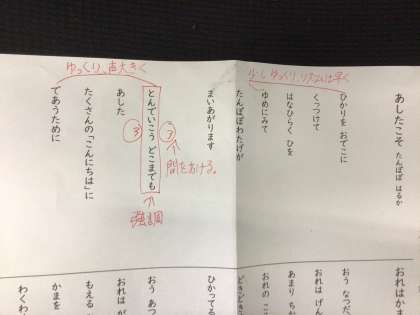 あしたこそ たんぽぽ はるか
少しゆっくり、リズムは早く
ひかりを おでこに
くっつけて
はなひらく ひを
ゆめにみて
たんぽぽわたげが
まいあがります
間をあける。
とんでいこう どこまでも
強調
ゆっくり、声大きく
あした
たくさんの「こんにちは」に
であうために
おれはかま
おう なつだ
おれは げん
あまり ちか
おれの ここ
どきどき
ひかってる
おう あつ
おれは が
もえる
かまを
わくわ